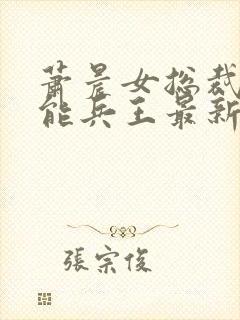 萧晨女总裁
能兵王最新
张宗俊